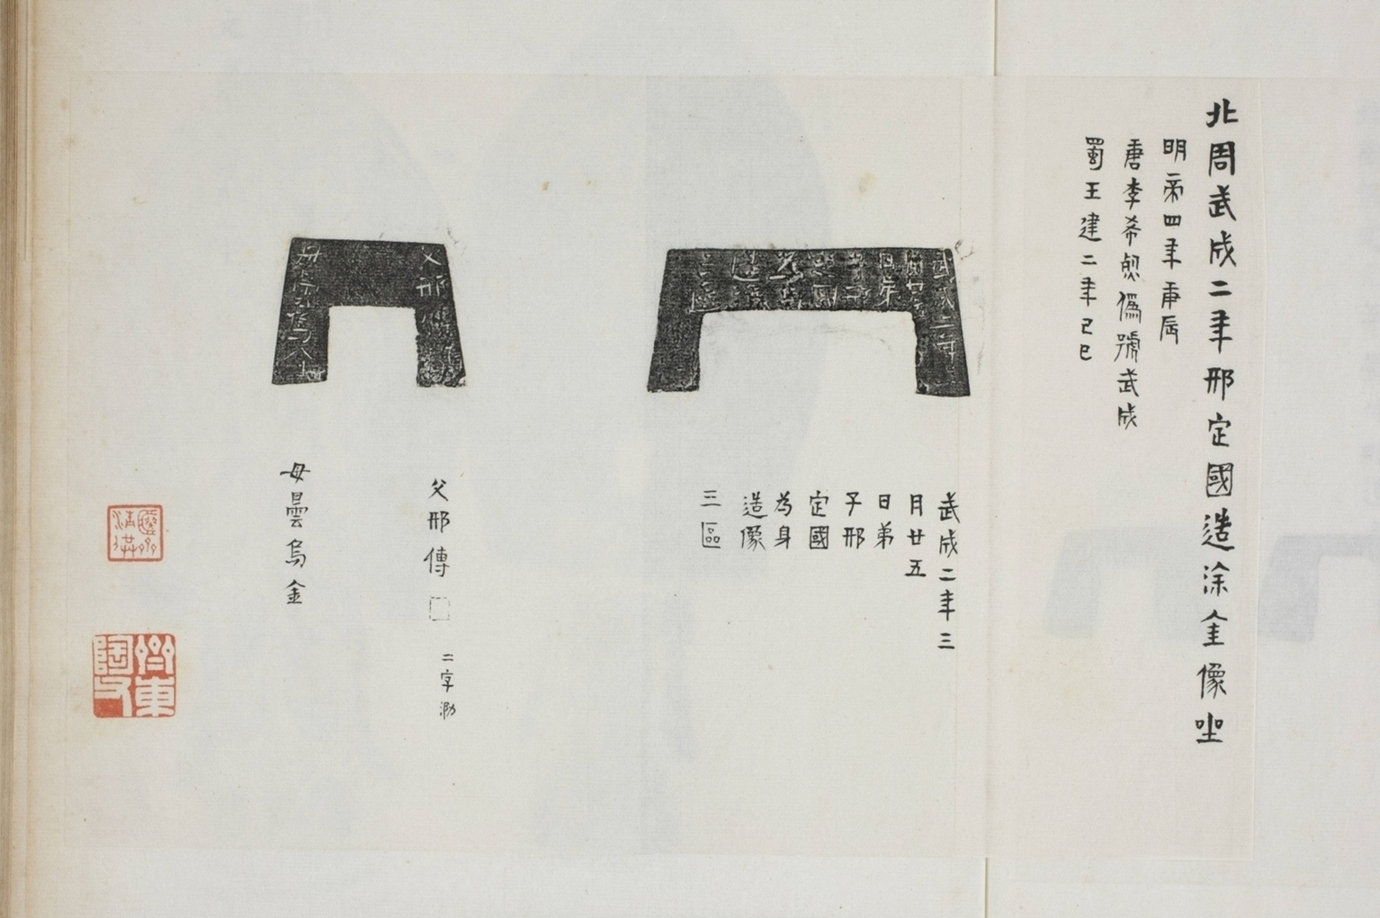 北周武成二年邢定國造涂金像坐
明帝四年庚辰
唐李希烈僞號武成
蜀王建二年己巳
武成二年三
月廿五
日弟
子邢
定國
為身
造像
三區
父邢傳□
二字泐
母曇烏金